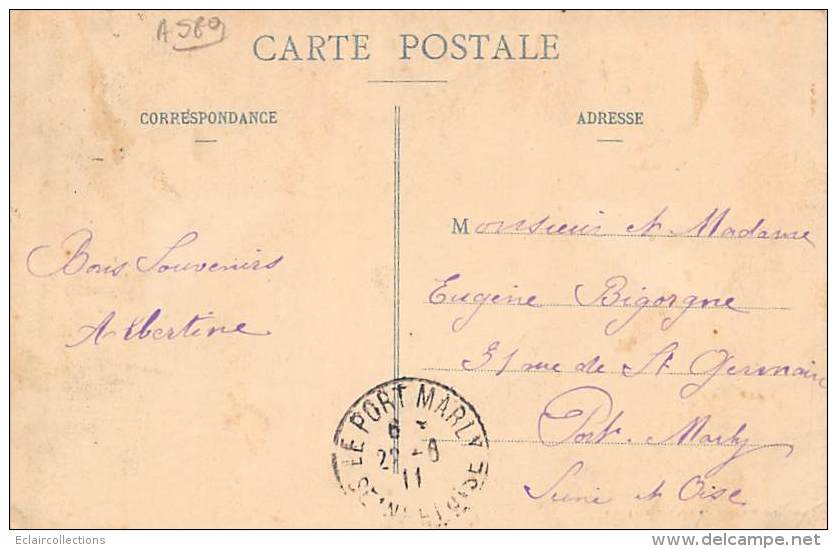 A 589
CARTE POSTALE
CORRESPONDANCE
ADRESSE
Bons Souvenirs
Albertine
Monsieur et Madame
Eugène Bigorgne
31 rue de St Germain
Port-Marly
Seine et Oise
LE PORT MARLY
22 -6
11
SEINE ET OISE
Eclaircollections
www.delcampe.net